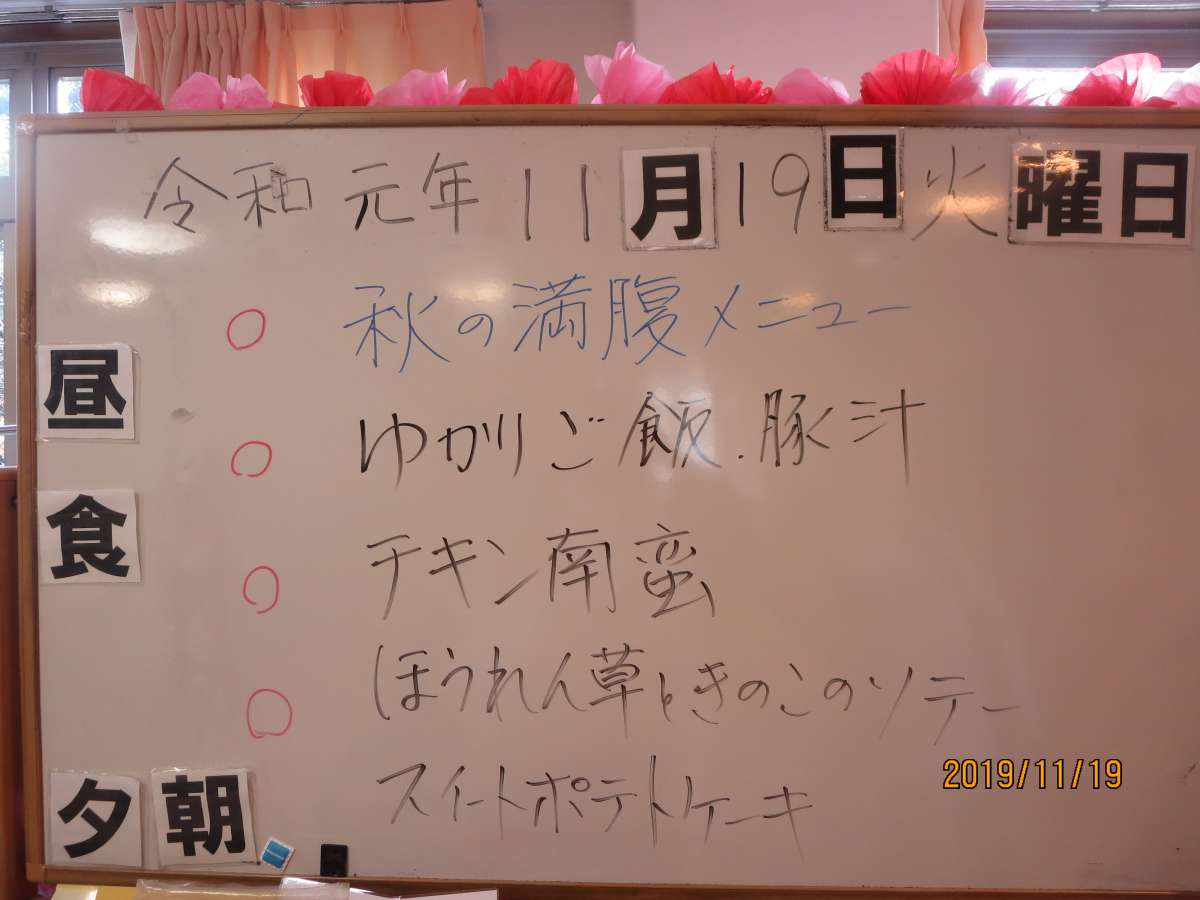 令和元年11月19日火曜日
秋の満腹メニュー
昼食
ゆかりご飯.豚汁
チキン南蛮
ほうれん草ときのこのソテー
スイートポテトケーキ
夕朝
2019/11/19